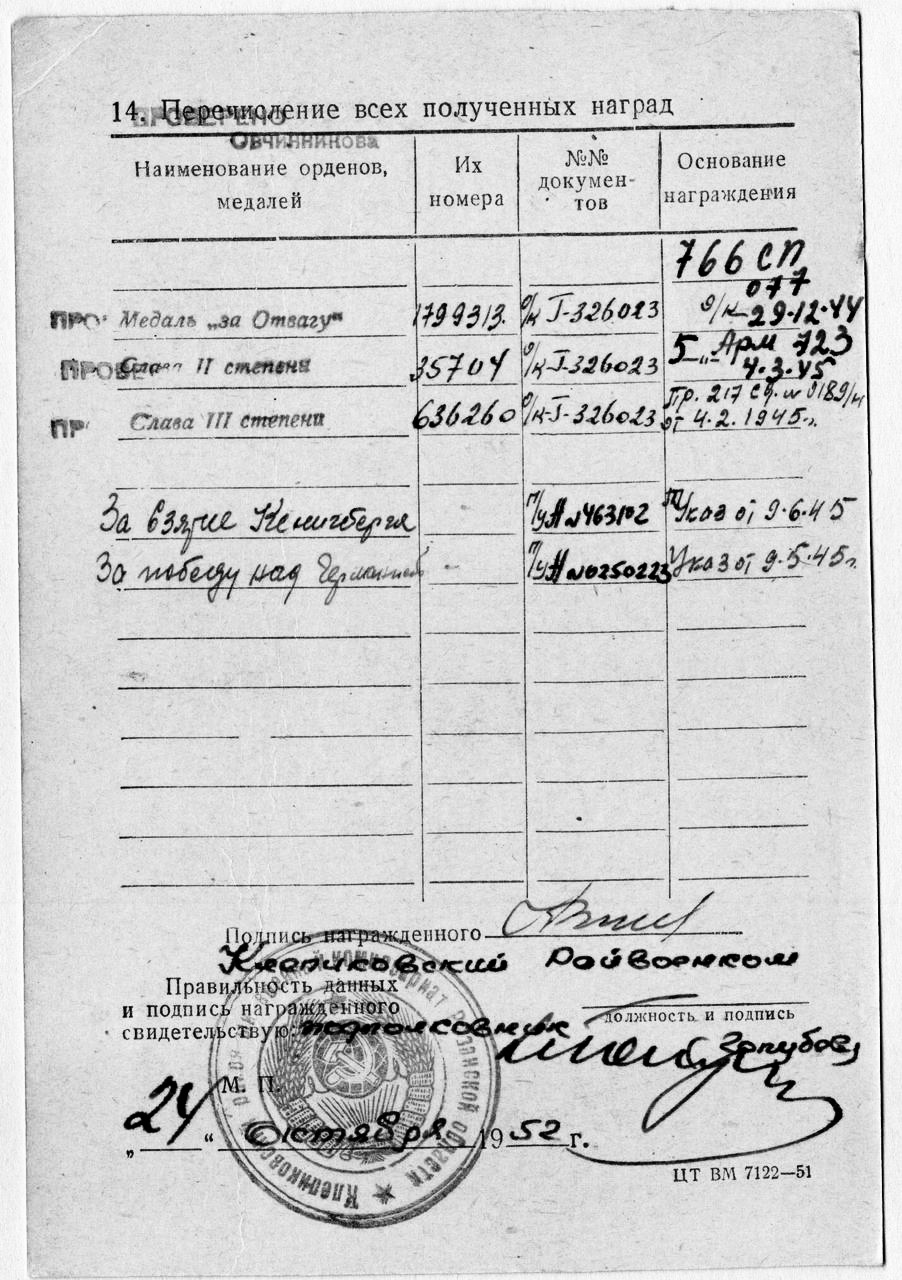 14. Перечисление всех полученных наград
ПРОВЕРЕНО
ОВЧИННИКОВА
Наименование орденов, медалей
Их номера
№№ документов
Основание награждения
766 СП
077
Медаль „за Отвагу" 1799313. о/к I-326023 о/к 29.12.44
ПРОВЕ Слава II степени 35704 о/к I-326023 5 „ Арм 723
4.3.45
ПР Слава III степени 636260 о/к-I-326023 Пр. 217 сд. № 0189/н
от 4.2.1945г.
За взятие Кенигсберга Указ от 9.6.45
За победу над Германией № 0250223 Указ от 9.5.45г.
Подпись награжденного
Клепиковский Райвоенком
Правильность данных
и подпись награжденного
свидетельствую: подполковник
должность и подпись
М. П.
„24" Октября 1952 г.
ЦТ ВМ 7122—51
Клепиковский комиссариат Рязанской области